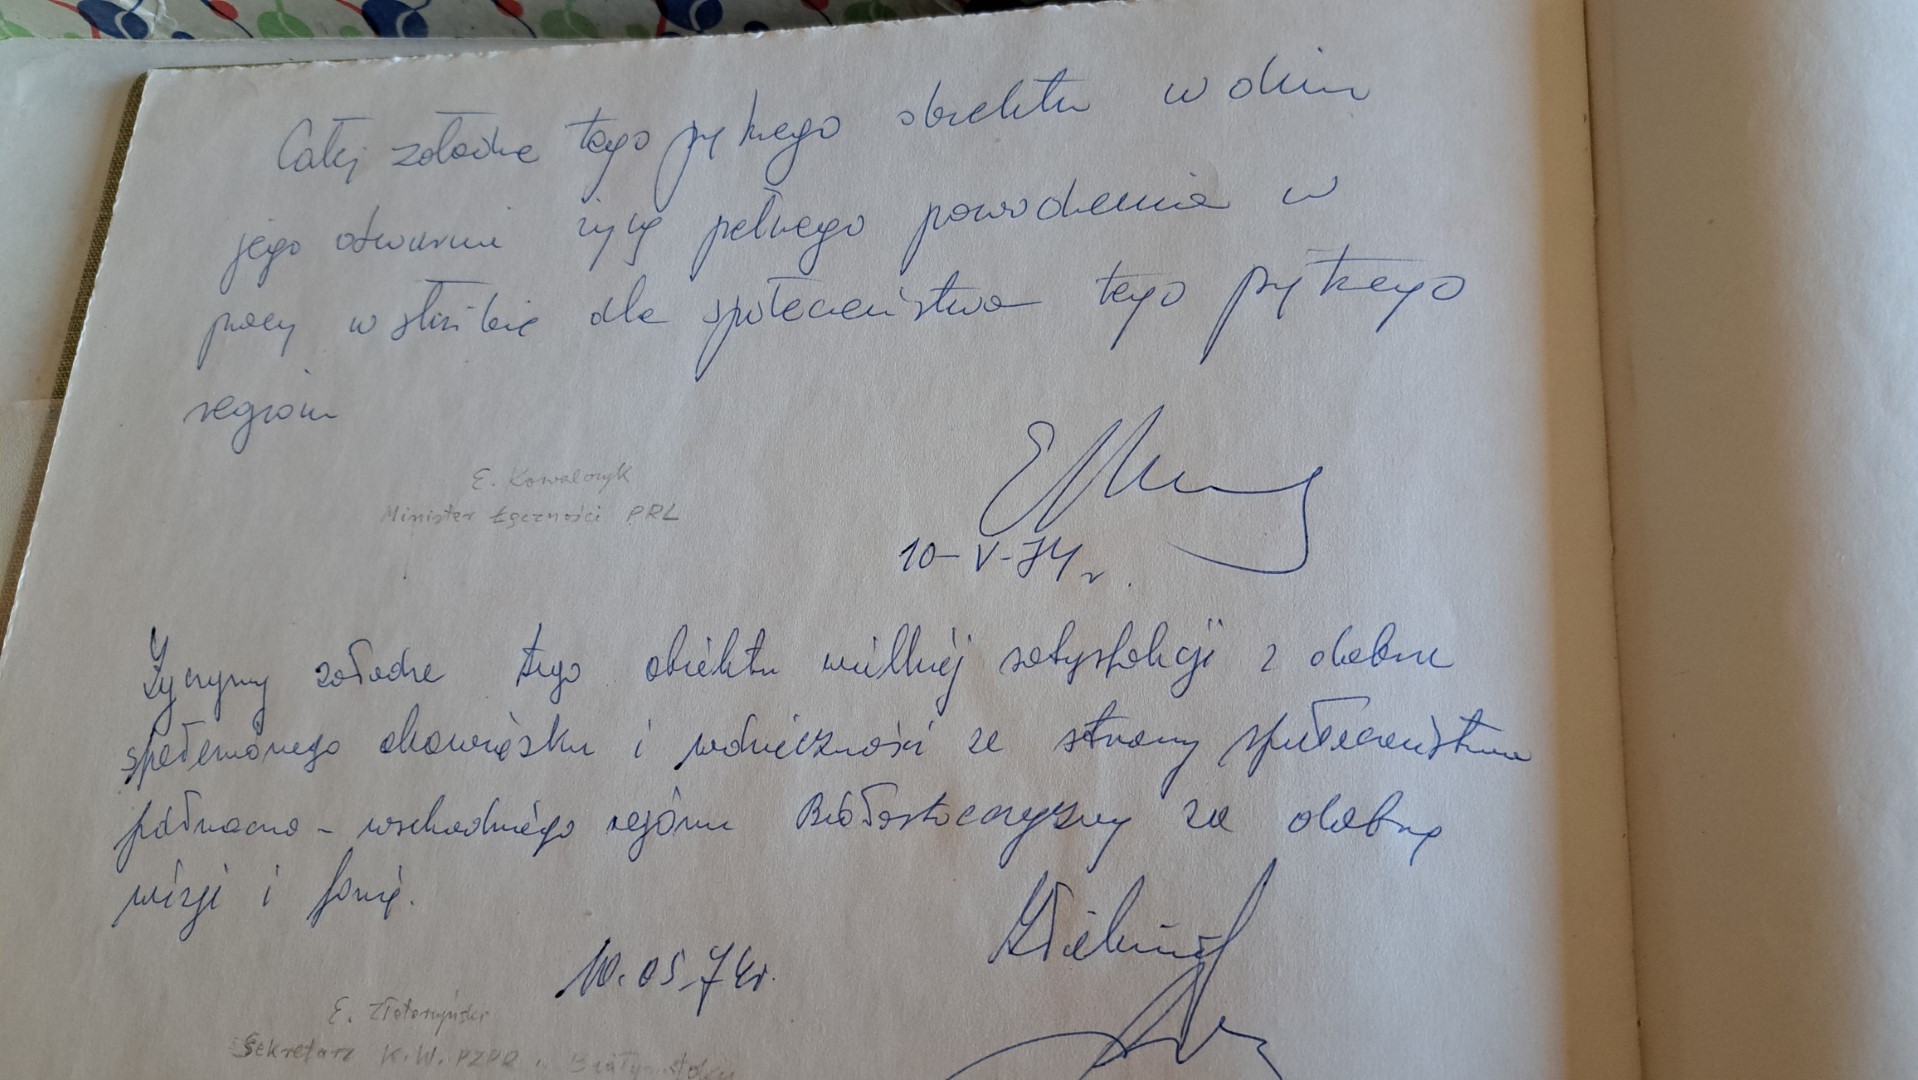 Całej załodze tego pięknego obiektu w dniu
jego otwarcia życzę pełnego powodzenia w
pracy w służbie dla społeczeństwa tego pięknego
regionu
E. Kowalczyk
Minister Łączności PRL
10-V-74 r.
Życzymy załodze tego obiektu wielkiej satysfakcji z dobrze
spełnionego obowiązku i wdzięczności ze strony społeczeństwa
północno-wschodniego rejonu Białostocczyzny za dobrą
wizję i fonię.
10.05.74r.
E.
Sekretarz K.W. PZPR w Białymstoku